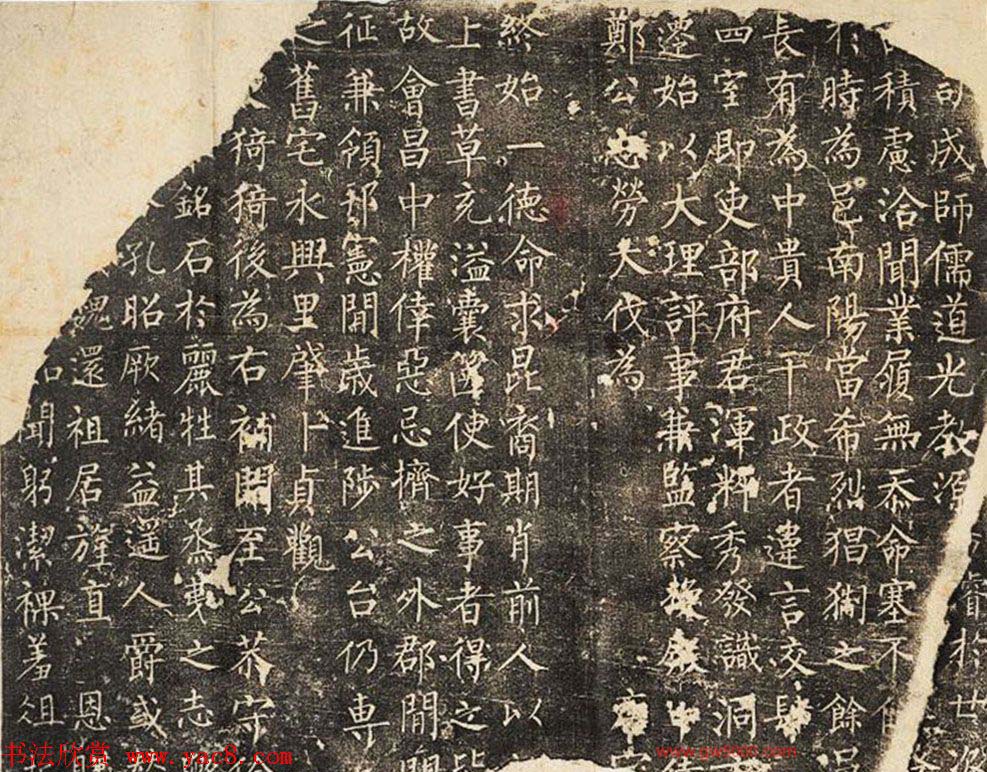 司成師儒道光教源睿於世
積慮洽聞業履無忝命塞不
於時為邑南陽當希烈猖獗之餘
長有為中貴人干政者違言交
四室即吏部府君渾粹秀發識洞
遷始以大理評事兼監察
鄭公忠勞大伐為
終始一德命求昆裔期肖前人以
上書草充溢囊箧使好事者得之
故會昌中權倖惡忌擠之外郡間
征兼領邦憲間歲進陟公台仍專
之舊宅永興里肇卜貞觀
猗猗後為右補闕至公恭守
銘石於麗牲其烝彝之志
孔昭厥緒益遥人爵或
還祖居旌直恩
聞躬潔裸羞俎
书法欣赏 www.yac8.com